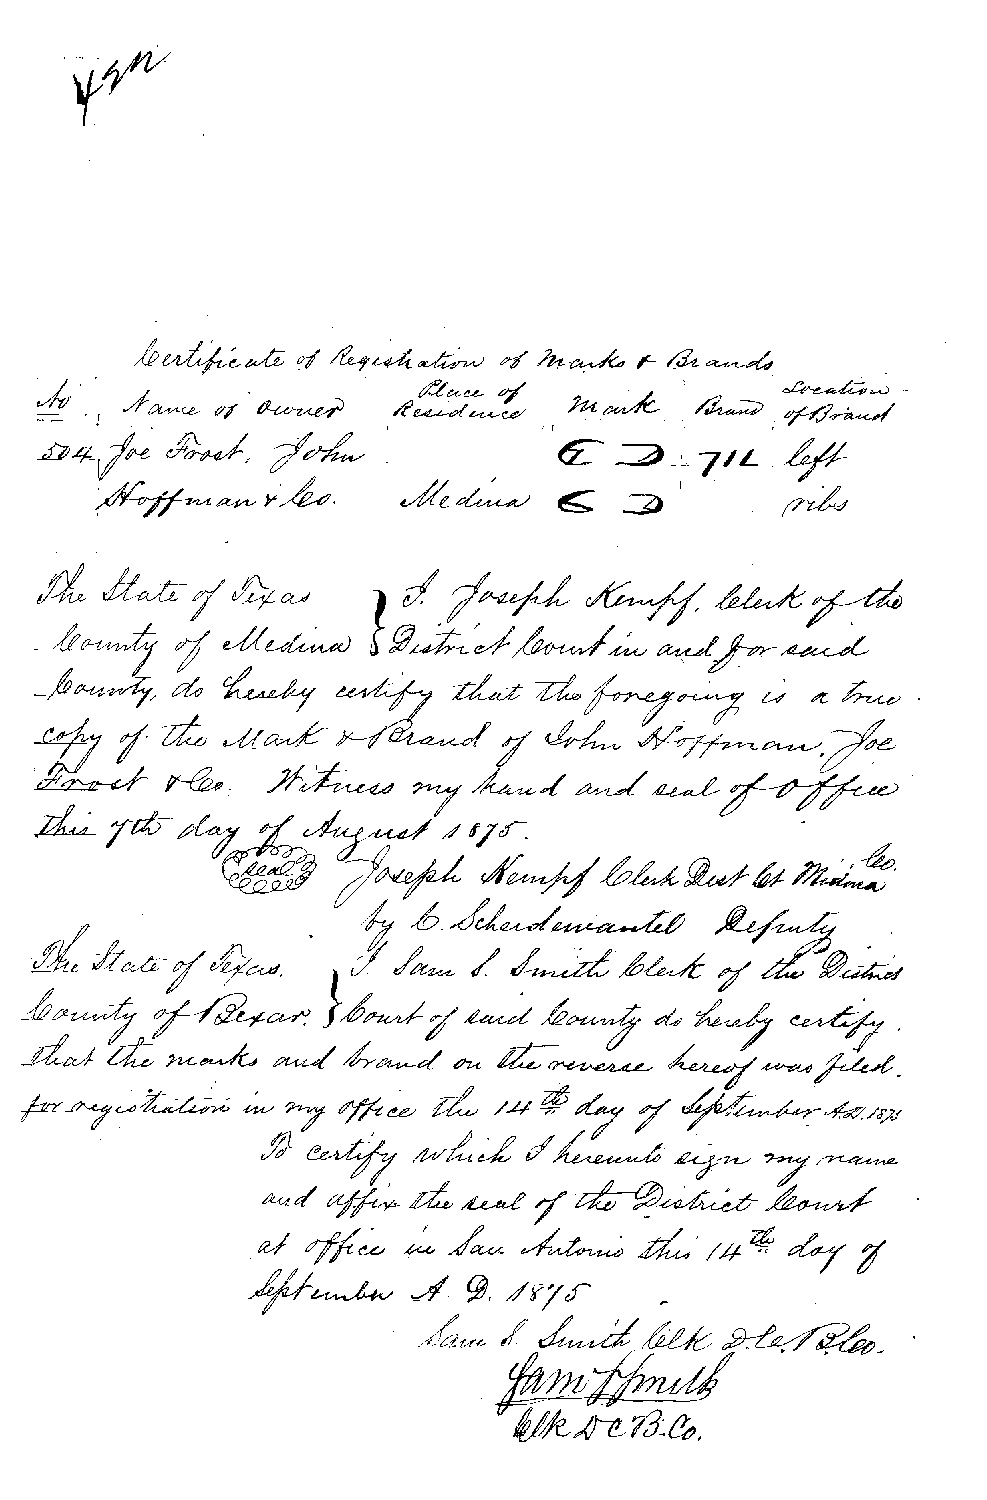 Certificate of Registration of Marks & Brands
No. Name of Owner Place of Residence Mark Brand Location of Brand
504 Joe Frost, John 71L left
Hoffman & Co. Medina ribs
The State of Texas } I. Joseph Kempf, Clerk of the
County of Medina } District Court in and for said
County, do hereby certify that the foregoing is a true
copy of the Mark & Brand of John Hoffman, Joe
Frost & Co. Witness my hand and seal of office
this 7th day of August 1875.
(Seal) Joseph Kempf Clerk Dist Ct Medina Co.
by C. Scheidemantel Deputy
The State of Texas. } I. Sam S. Smith Clerk of the District
County of Bexar. } Court of said County do hereby certify
that the marks and brand on the reverse hereof was filed
for registration in my office the 14th day of September A.D. 1875
To certify which I hereunto sign my name
and affix the seal of the District Court
at office in San Antonio this 14th day of
September A. D. 1875
Sam S. Smith Clk D.C. B.Co.
Sam S Smith
Clk D C B. Co.